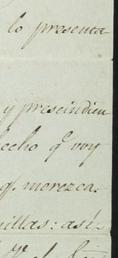 lo presenta
y prescindien
echo q.e voy
q.e merezca
nillas: asi